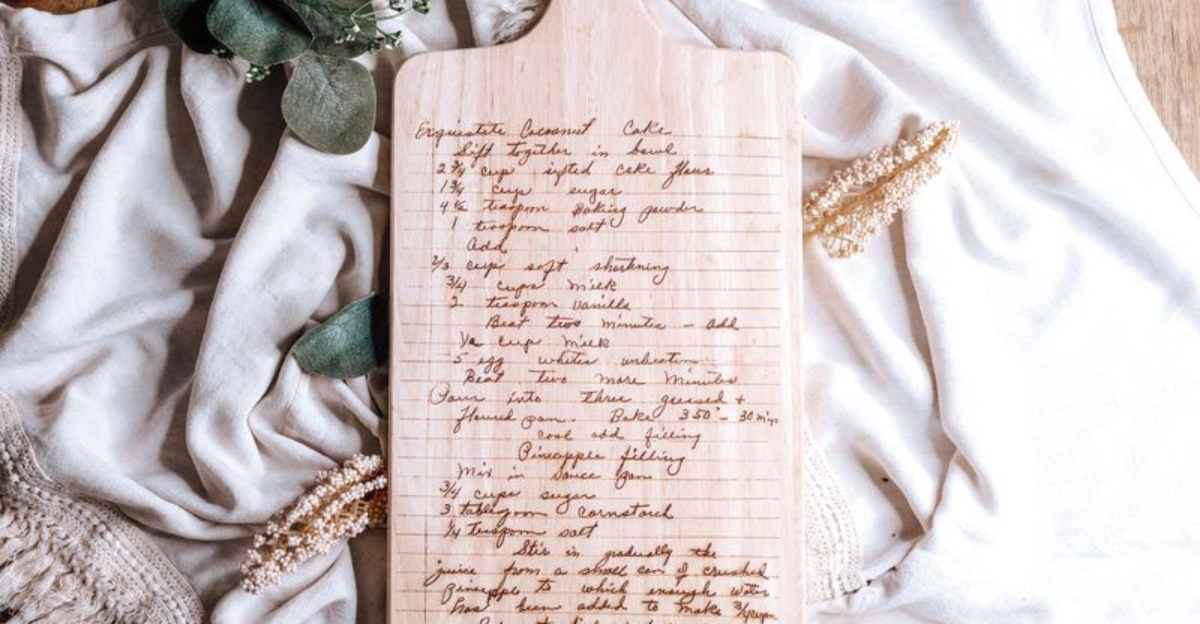 Exquistite Cocoanut Cake
Sift together in bowl
2 3/4 cup sifted cake flour
1 3/4 cup sugar
4 1/2 teaspoon Baking powder
1 teaspoon salt
Add
2/3 cup soft shortning
3/4 cups milk
2 teaspoon vanilla
Beat two minutes - add
1/2 cup milk
5 egg whites unbeaten
Beat two more minutes
Pour into three greased +
floured pan. Bake 350° - 30 min
cool add filling
Pineapple filling
Mix in sauce pan
3/4 cups sugar
3 tablespoon cornstarch
1/4 teaspoon salt
Stir in gradually the
juice from a small can of crushed
pineapple to which enough water
has been added to make 3/4 cup